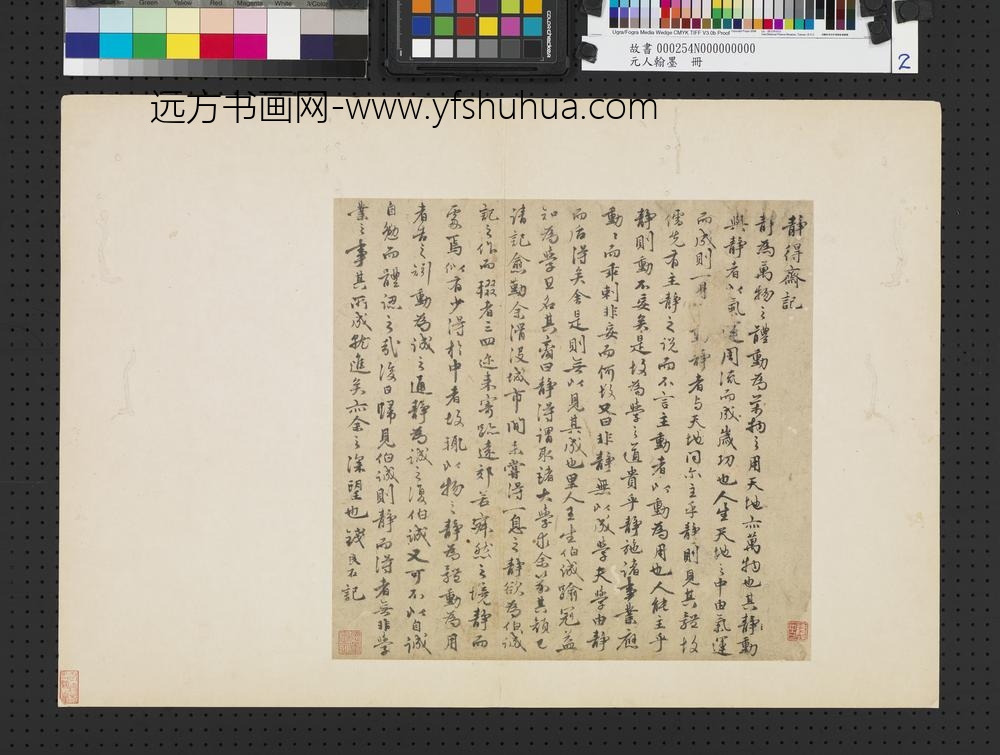 Green Yellow Red Magenta White 3/Color
colorchecker
Ugra/Fogra Media Wedge CMYK TIFF V3.0b Proof
故書 000254N000000000
元人翰墨 冊
2
远方书画网-www.yfshuhua.com
靜得齋記
靜為萬物之體動為萬物之用天地亦萬物也其靜動
與靜者以氣運用流而成歲功也人生天地之中由氣運
而成則一身 靜者与天地同尔主乎靜則見其體故
儒先有主靜之說而不言主動者以動為用也人能主乎
靜則動不妄矣是故為學之道貴乎靜施諸事業應
動之而乖剌非妄而何故又曰非靜無以成學夫學由靜
而后得矣舍是則無以見其成也里人王生伯誠踰冠益
知為學且名其齋曰靜得謂取諸大學求余筆其顛已
請記愈勤余滑沒城市間未嘗得一息之靜欲為伯誠
記之作而輟者三四迩來寄跡遠郊若舜然之境靜而
處焉似有少得於中者故輒以物之靜為體動為用
者告之引動為誠之通靜為誠之復伯誠又可不以自誠
自勉而體認之哉後日歸見伯誠則靜而得者無非學
業之事其所成就進矣亦余之深望也錢良右記